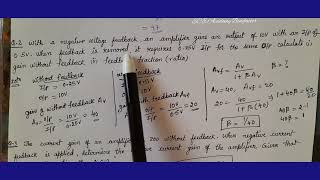 = 99
Q.2 With a negative voltage feedback an amplifier gives an output of 10V with an I/P
of 0.5V. when feedback is removed it requires 0.25V I/P for the same O/P calculate i)
gain without feedback ii) feedback fraction (ratio)
Without feedback
I/P = 0.25V
O/P = 10V
gain of without feedback Av
Av = O/P / I/P = 10V / 0.25V = 40
feedback
0.5V
10V
feedback Avf
10V / 0.5V = 20
Avf = Av / 1+βAv
20 = 40 / 1+β(40)
1+40β = 40 / 20 = 2
40β = 2-1
40β = 1
β = 1/40
Q.3 The current gain of an amplifier is 200 without feedback. When negative current
feedback is applied, determine the current gain of the amplifier. Given that